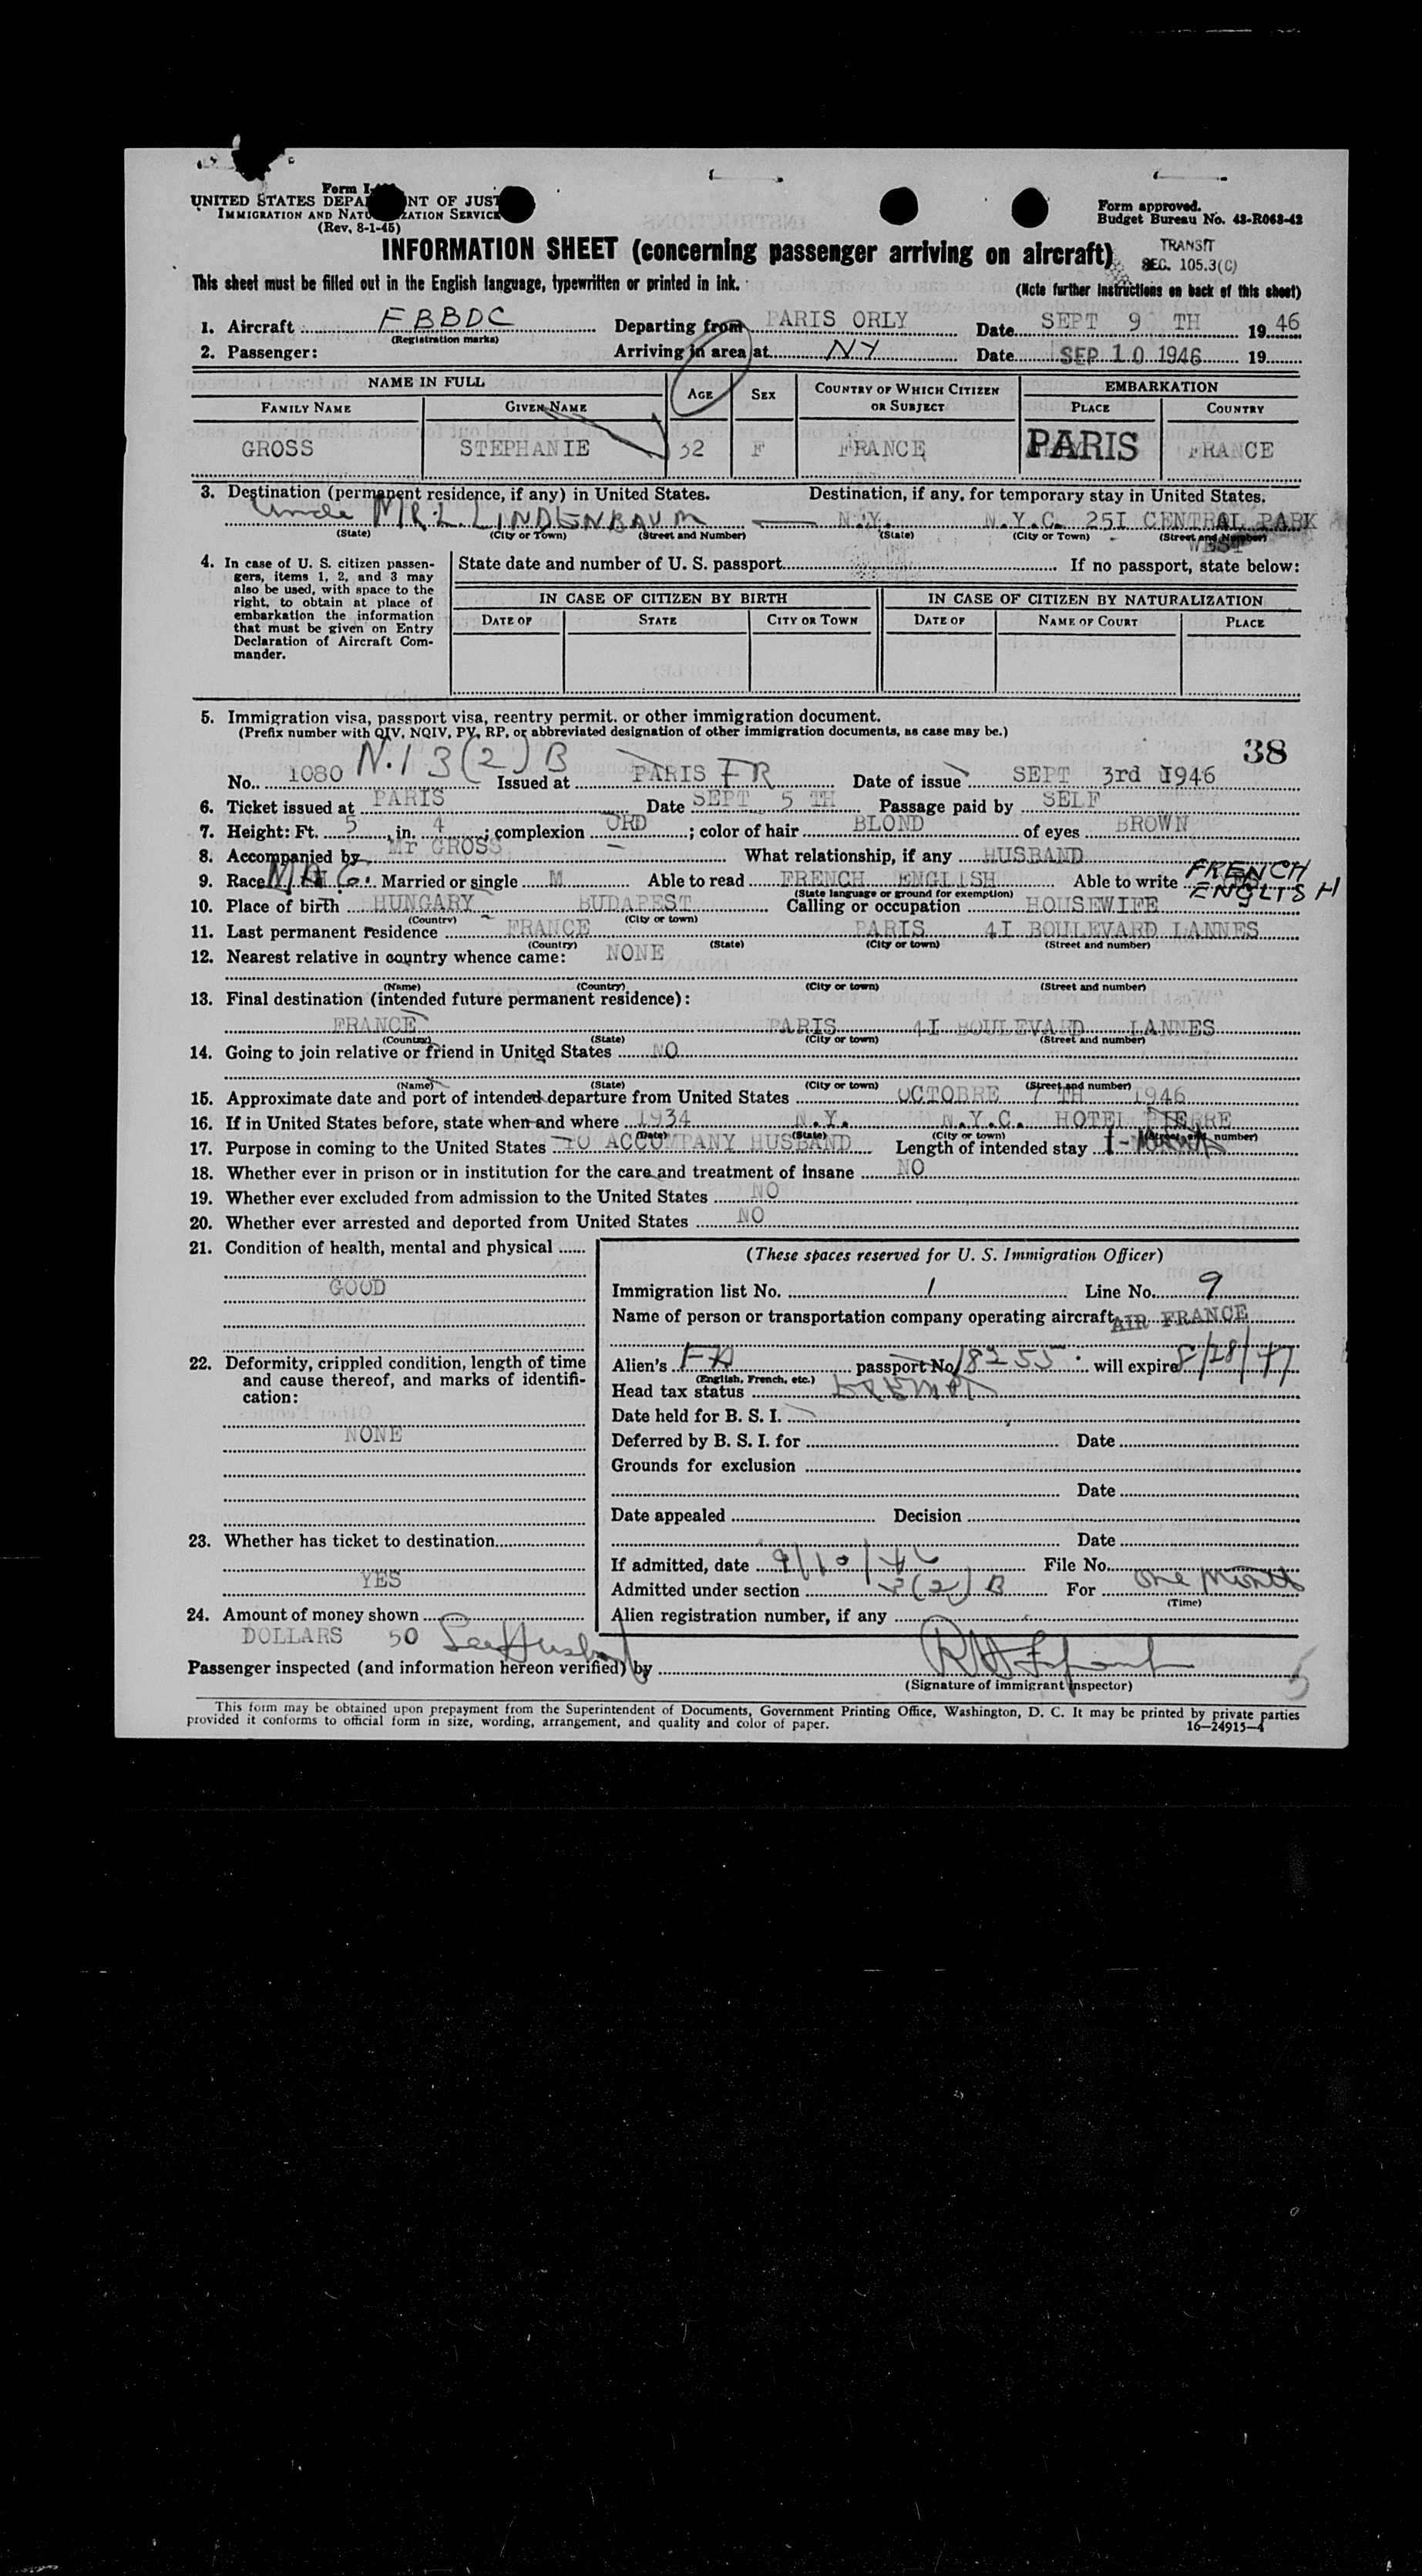 Form I-
UNITED STATES DEPA NT OF JUST
IMMIGRATION AND NATU ZATION SERVICE
(Rev. 8-1-45)
Form approved.
Budget Bureau No. 43-R068-42
INFORMATION SHEET (concerning passenger arriving on aircraft)
TRANSIT
SEC. 105.3(C)
This sheet must be filled out in the English language, typewritten or printed in ink.
(Note further instructions on back of this sheet)
1. Aircraft FBBDC Departing from PARIS ORLY Date SEPT 9 TH 1946
(Registration marks)
2. Passenger: Arriving in area at NY Date SEP 10 1946 19
NAME IN FULL AGE SEX COUNTRY OF WHICH CITIZEN OR SUBJECT EMBARKATION
FAMILY NAME GIVEN NAME PLACE COUNTRY
GROSS STEPHANIE 32 F FRANCE PARIS FRANCE
3. Destination (permanent residence, if any) in United States. Destination, if any, for temporary stay in United States.
Uncle MR. L. LINDENBAUM N.Y. N.Y.C. 25I CENTRAL PARK
WEST
(State) (City or Town) (Street and Number) (State) (City or Town) (Street and Number)
4. In case of U. S. citizen passengers, items 1, 2, and 3 may also be used, with space to the right, to obtain at place of embarkation the information that must be given on Entry Declaration of Aircraft Commander.
State date and number of U. S. passport If no passport, state below:
IN CASE OF CITIZEN BY BIRTH IN CASE OF CITIZEN BY NATURALIZATION
DATE OF STATE CITY OR TOWN DATE OF NAME OF COURT PLACE
5. Immigration visa, passport visa, reentry permit, or other immigration document.
(Prefix number with QIV, NQIV, PV, RP, or abbreviated designation of other immigration documents, as case may be.)
38
No. 1080 N.I 3(2)B Issued at PARIS FR Date of issue SEPT 3rd 1946
6. Ticket issued at PARIS Date SEPT 5 TH Passage paid by SELF
7. Height: Ft. 5, in. 4; complexion ORD; color of hair BLOND of eyes BROWN
8. Accompanied by Mr GROSS What relationship, if any HUSBAND
9. Race MAG. Married or single M Able to read FRENCH ENGLISH Able to write FRENCH ENGLISH
(State language or ground for exemption)
10. Place of birth HUNGARY BUDAPEST Calling or occupation HOUSEWIFE
(Country) (City or town)
11. Last permanent residence FRANCE PARIS 4I BOULEVARD LANNES
(Country) (State) (City or town) (Street and number)
12. Nearest relative in country whence came: NONE
(Name) (Country) (City or town) (Street and number)
13. Final destination (intended future permanent residence):
FRANCE PARIS 4I BOULEVARD LANNES
(Country) (State) (City or town) (Street and number)
14. Going to join relative or friend in United States NO
(Name) (State) (City or town) (Street and number)
15. Approximate date and port of intended departure from United States OCTOBRE 7 TH 1946
16. If in United States before, state when and where 1934 N.Y. N.Y.C. HOTEL PIERRE
(Date) (State) (City or town) (Street and number)
17. Purpose in coming to the United States TO ACCOMPANY HUSBAND Length of intended stay 1-
18. Whether ever in prison or in institution for the care and treatment of insane NO
19. Whether ever excluded from admission to the United States NO
20. Whether ever arrested and deported from United States NO
21. Condition of health, mental and physical
GOOD
22. Deformity, crippled condition, length of time and cause thereof, and marks of identification:
NONE
23. Whether has ticket to destination
YES
24. Amount of money shown
DOLLARS 50 See Husband
(These spaces reserved for U. S. Immigration Officer)
Immigration list No. 1 Line No. 9
Name of person or transportation company operating aircraft AIR FRANCE
Alien's FR passport No. 18255 will expire 8/28/47
(English, French, etc.)
Head tax status EXEMPT
Date held for B. S. I.
Deferred by B. S. I. for Date
Grounds for exclusion
Date
Date appealed Decision
Date
If admitted, date 9/10/46 File No.
Admitted under section 3(2)B For One Month
(Time)
Alien registration number, if any
Passenger inspected (and information hereon verified) by
(Signature of immigrant inspector)
This form may be obtained upon prepayment from the Superintendent of Documents, Government Printing Office, Washington, D. C. It may be printed by private parties
provided it conforms to official form in size, wording, arrangement, and quality and color of paper.
16—24915-4